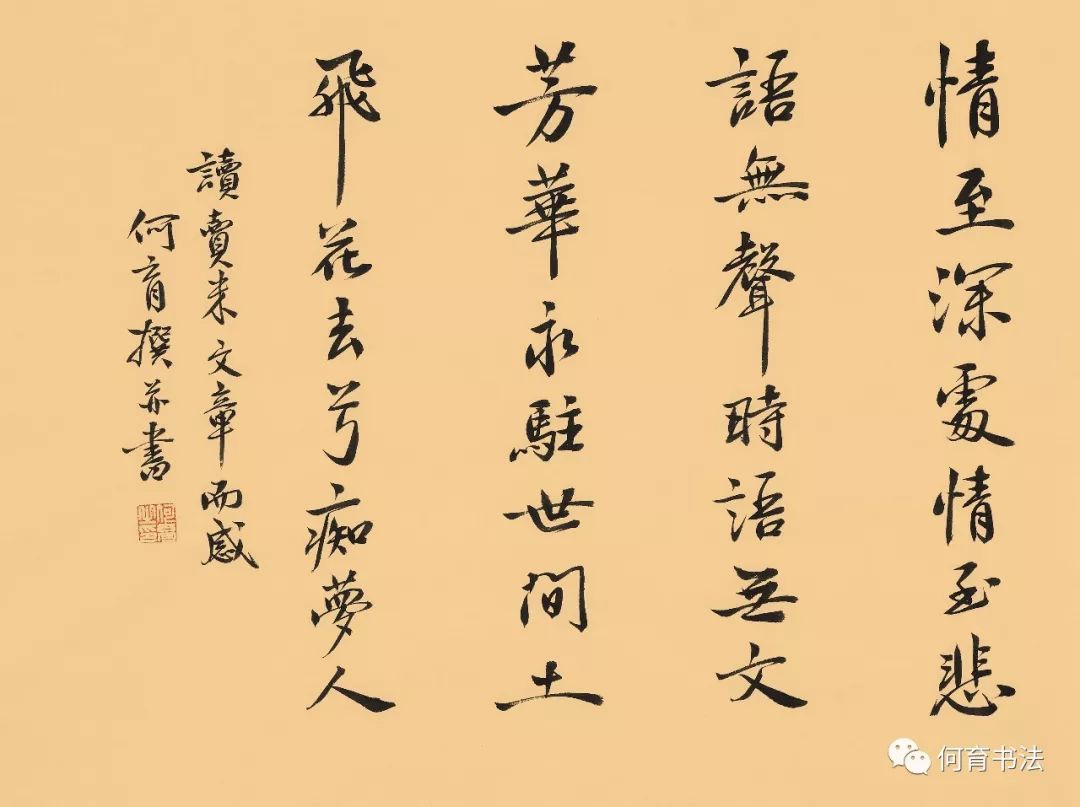 情至深處情至悲
語無聲時語無文
芳華永駐世間土
飛花去兮痴夢人
讀賣米文章而感
何育撰並書
何育书法